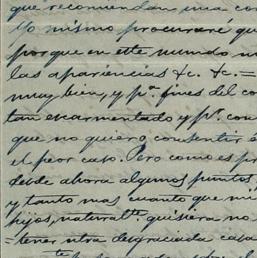 que recomiendan una con
Yo mismo procuraré qu
porque en este mundo m
las apariencias &c. &c. =
muy bien, y pª fines del co
tan escarmentado y pr. con
que no quiero consentir é
el peor caso. Pero como es pr
desde ahora algunos puntos,
y tanto mas cuanto que mi
hijos, naturalte. quisiera no
=tener ntra desgraciada casa